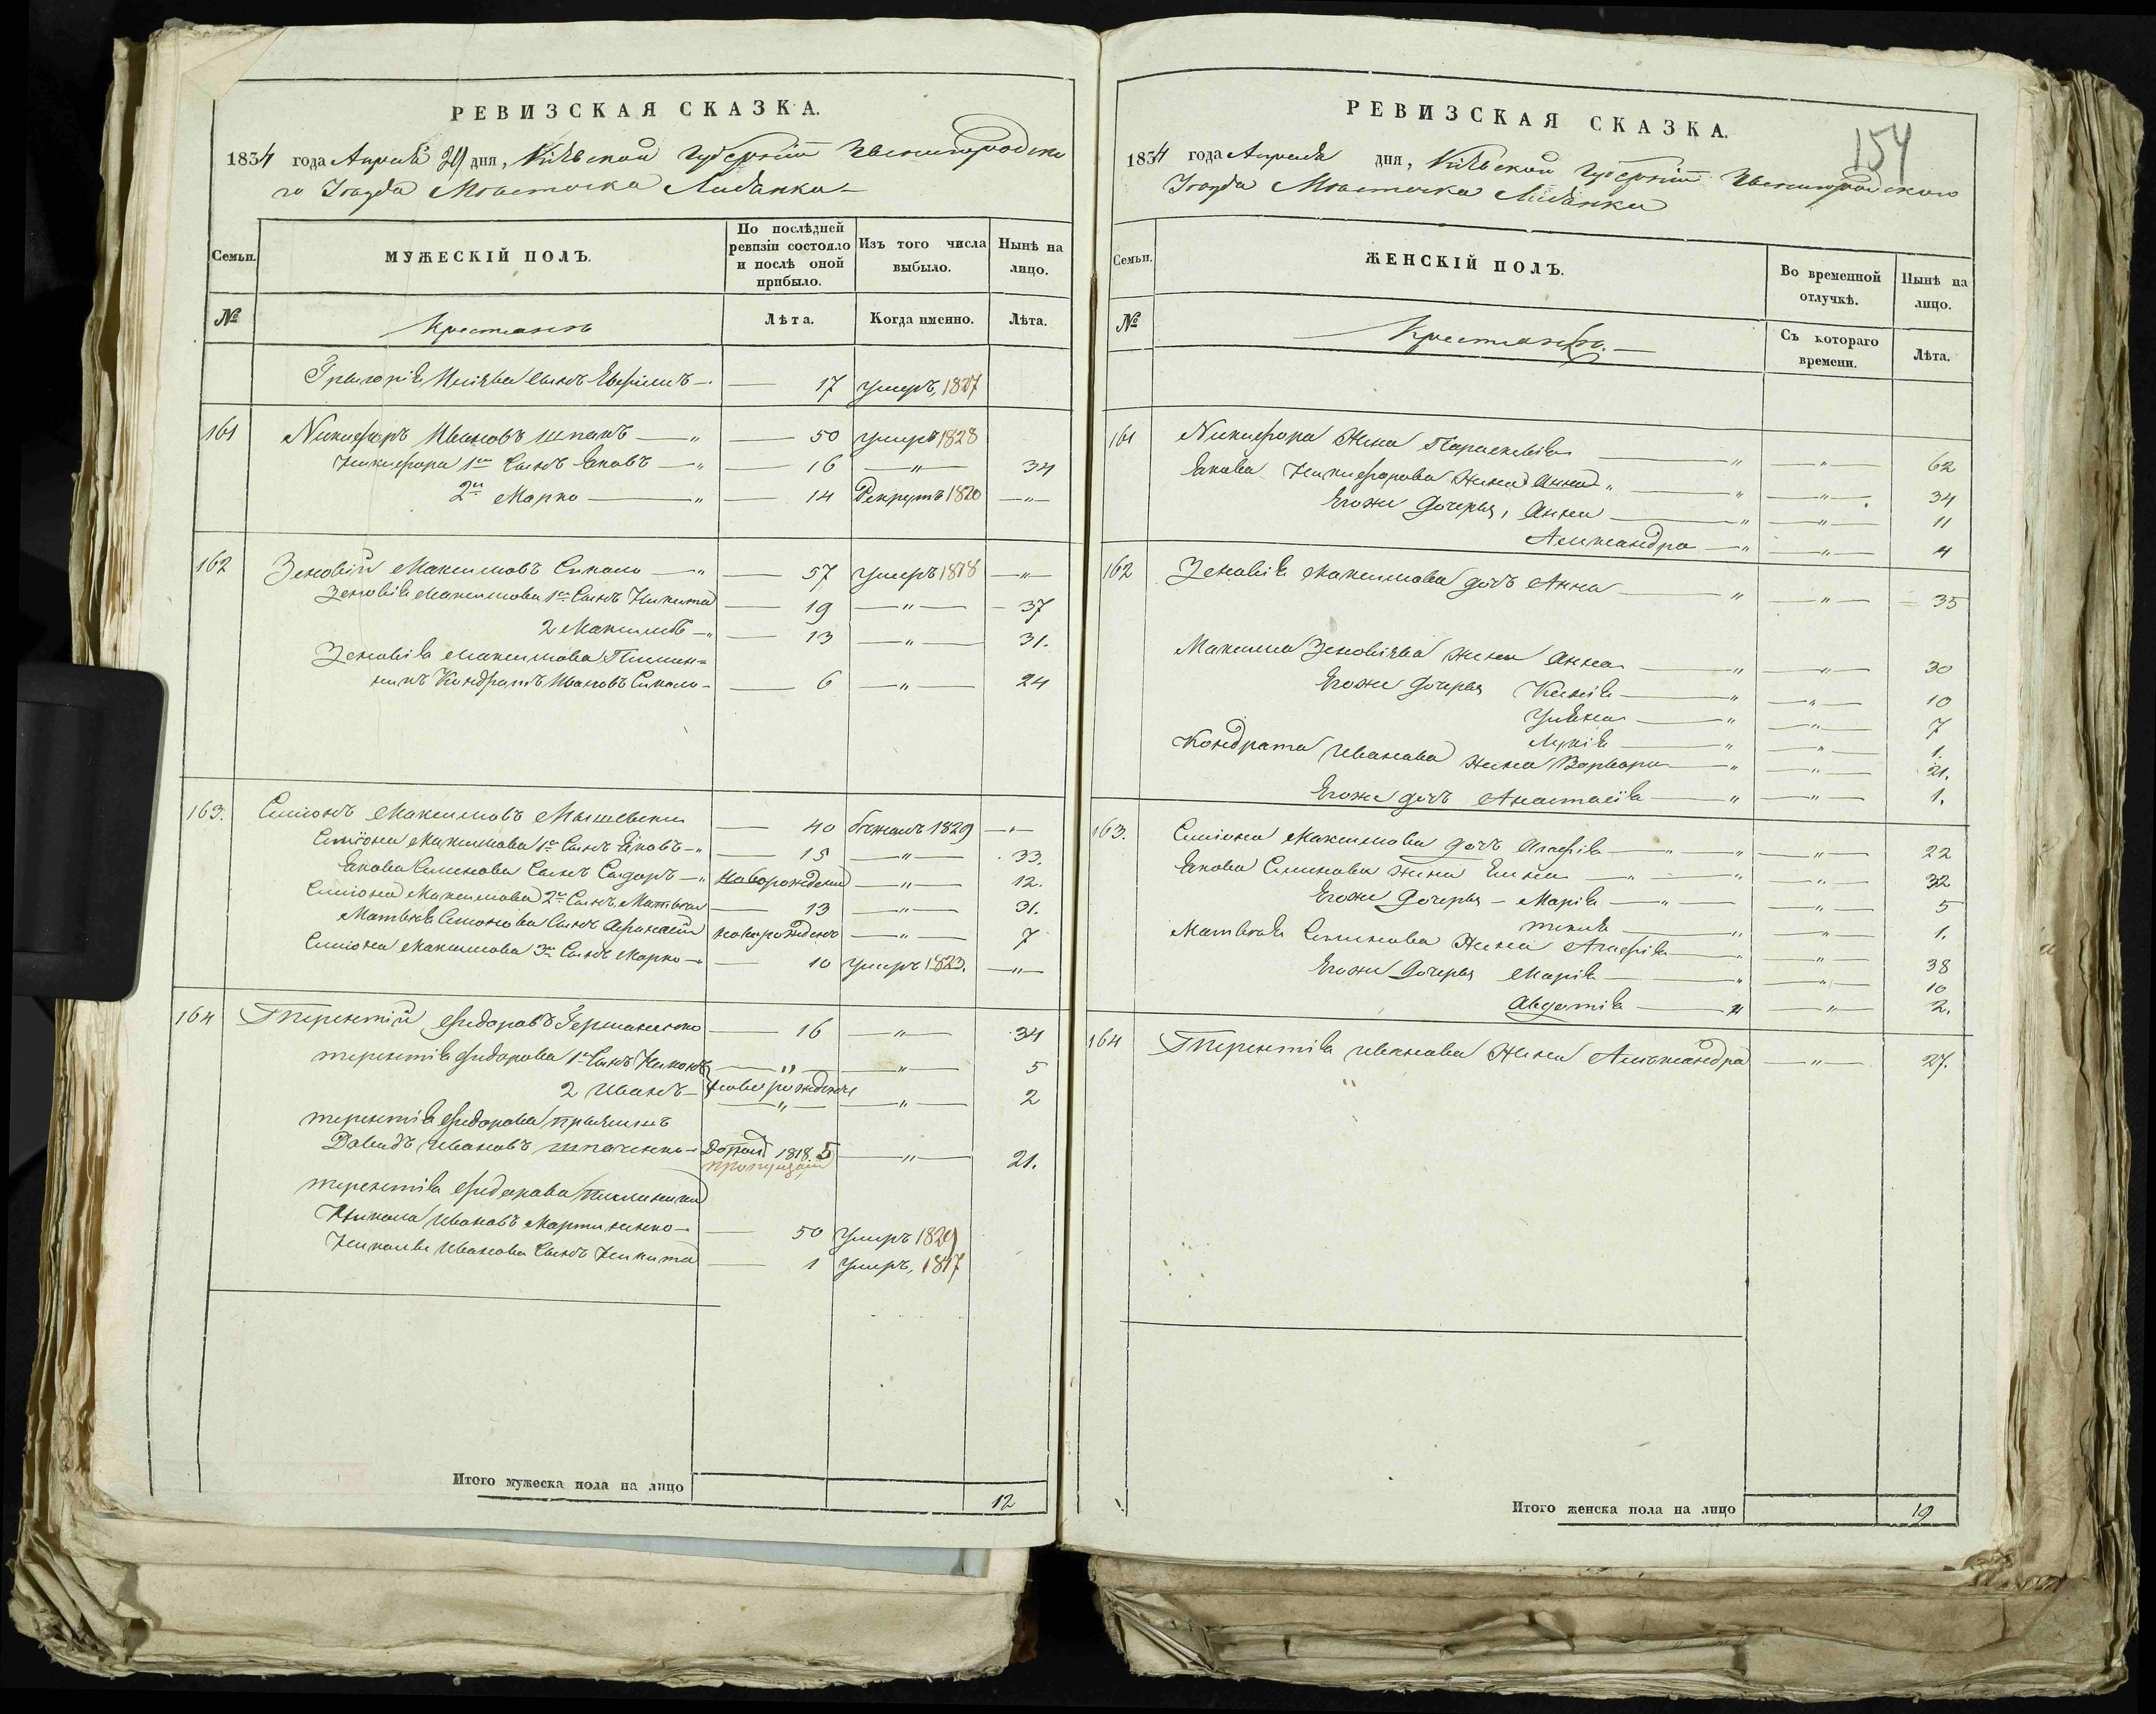 РЕВИЗСКАЯ СКАЗКА.
1834 года Апреля 29 дня, Кіевской губерніи Звенигородско
го Уезда Местечка Лисянки
Семьи.
МУЖЕСКІЙ ПОЛЪ.
По послѣдней ревизіи состояло и послѣ оной прибыло.
Изъ того числа выбыло.
Нынѣ на лицо.
№
Крестьянъ
Лѣта.
Когда именно.
Лѣта.
Григорія Ильева сынъ Ефимъ 17 умеръ, 1827
161 Никифоръ Ивановъ Шпакъ — " — 50 умеръ 1828
Никифора 1й сынъ Яковъ — " — 16 — " — 34
2й Марко — " — 14 Рекрутъ 1820 — " —
162 Зеновій Максимовъ Сикало — " — 57 умеръ 1818 — " —
Зеновія Максимова 1й сынъ Никита — 19 — " — 37
2 Максимъ — " — 13 — " — 31.
Зеновія Максимова Племян=
никъ Кондратъ Ивановъ Сикало — 6 — " — 24
163. Симіонъ Максимовъ — 40 бежалъ 1829 — " —
Симіона Максимова 1й сынъ Яковъ — " — 15 — " — 33.
Якова Симіонова сынъ Сидоръ — " новорожденый — " — 12.
Симіона Максимова 2й сынъ Матвей — 13 — " — 31.
Матвея Симонова сынъ Афанасій новорожденъ — " — 7
Симіона Максимова 3й сынъ Марко — 10 умеръ 1823. — " —
164 Терентій Федоровъ Германенко — 16 — " — 34
терентія федорова 1й сынъ Никонъ — " — — " — 5
2 Иванъ — новорожденые
— " — — " — 2
терентія федорова
Давидъ Ивановъ шпаченко — 1818. 5 — " — 21.
терентія федорова
Никола Ивановъ Мартиненко — 50 умеръ 1829
Николы Иванова сынъ Никита — 1 умеръ, 1817
Итого мужеска пола на лицо
12
РЕВИЗСКАЯ СКАЗКА.
154
1834 года Апреля дня, Кіевской губерніи Звенигородского
Уезда Местечка Лисянки
Семьи.
ЖЕНСКІЙ ПОЛЪ.
Во временной отлучкѣ.
Нынѣ на лицо.
№
Съ котораго времени.
Лѣта.
161 Никифора жена Параскевія — " — " — 62
Якова Никифорова жена Анна " — " — " — 34
Егоже дочерья, Анна — " — " — 11
Александра — " — " — 4
162 Зеновія Максимова дочъ Анна — " — " — 35
Максима Зеновіева жена Анна — " — " — 30
Егоже дочерья Ксенія — " — " — 10
Уляна — " — " — 7
Лукія — " — " — 1.
Кондрата Иванова жена Варвара — " — " — 21.
Егоже дочъ Анастасія — " — " — 1.
163. Симіона Максимова дочъ Агафія — " — " — " — 22
Якова Симіонова жена — " — " — " — 32
Егоже дочерья — Марія — " — " — 5
— " — " — 1.
Матвея Симионова жена Агафія — " — " — 38
Егоже дочерья Марія — " — " — 10
Авдотія — " — " — 2.
164 Терентія Иванова жена Александра — " — 27.
Итого женска пола на лицо
19